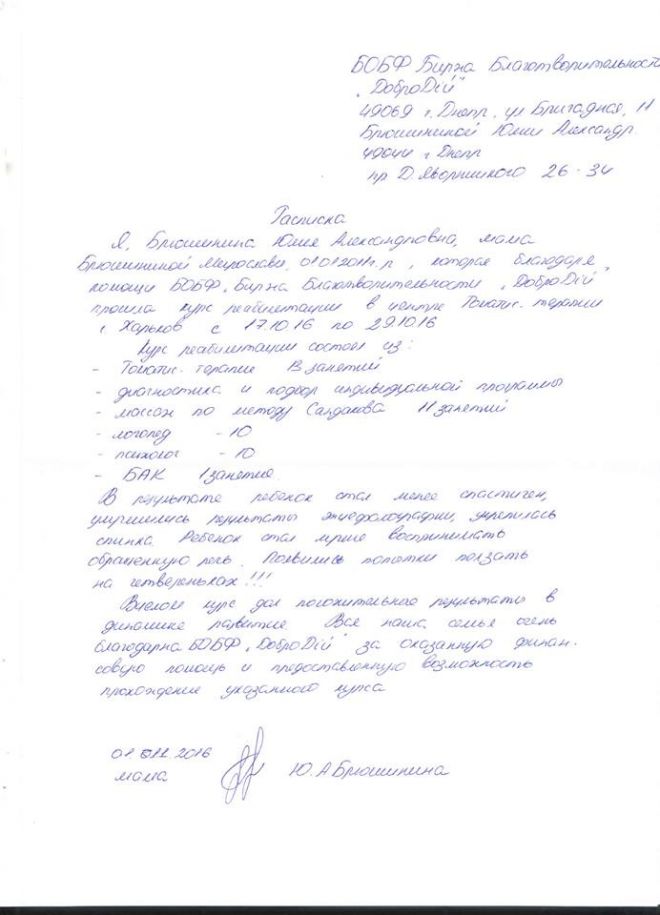 БОБФ Биржа Благотворительность
"ДоброДій"
49069 г. Днепр, ул Бригадная, 11
Брюшининой Юлии Александр
49044 г Днепр
пр Д. Яворницкого 26-34
Расписка
Я, Брюшинина Юлия Александровна, мама
Брюшининой Мирославы, 01.01.2011 г.р, которая благодаря
помощи БОБФ "Биржа Благотворительности "ДоброДій"
прошла курс реабилитации в центре Томатис. терапии
г Харьков с 17.10.16 по 29.10.16
Курс реабилитации состоял из:
- Томатис. терапия занятий
- диагностика и подбор индивидуальной программы
- массаж по методу Сандакова 11 занятий
- логопед - 10
- психолог - 10
- БАК 1 занятие
В результате ребенок стал менее спастичен,
улучшились результаты энцефалографии, укрепилась
спинка. Ребенок стал лучше воспринимать
обращенную речь. Появились попытки ползать
на четвереньках!!!
Вцелом курс дал положительные результаты в
динамике развития Вся наша семья очень
благодарна БОБФ "ДоброДій" за оказанную финан-
совую помощь и предоставленную возможность
прохождения указанного курса
01.11.2016
мама Ю.А Брюшинина